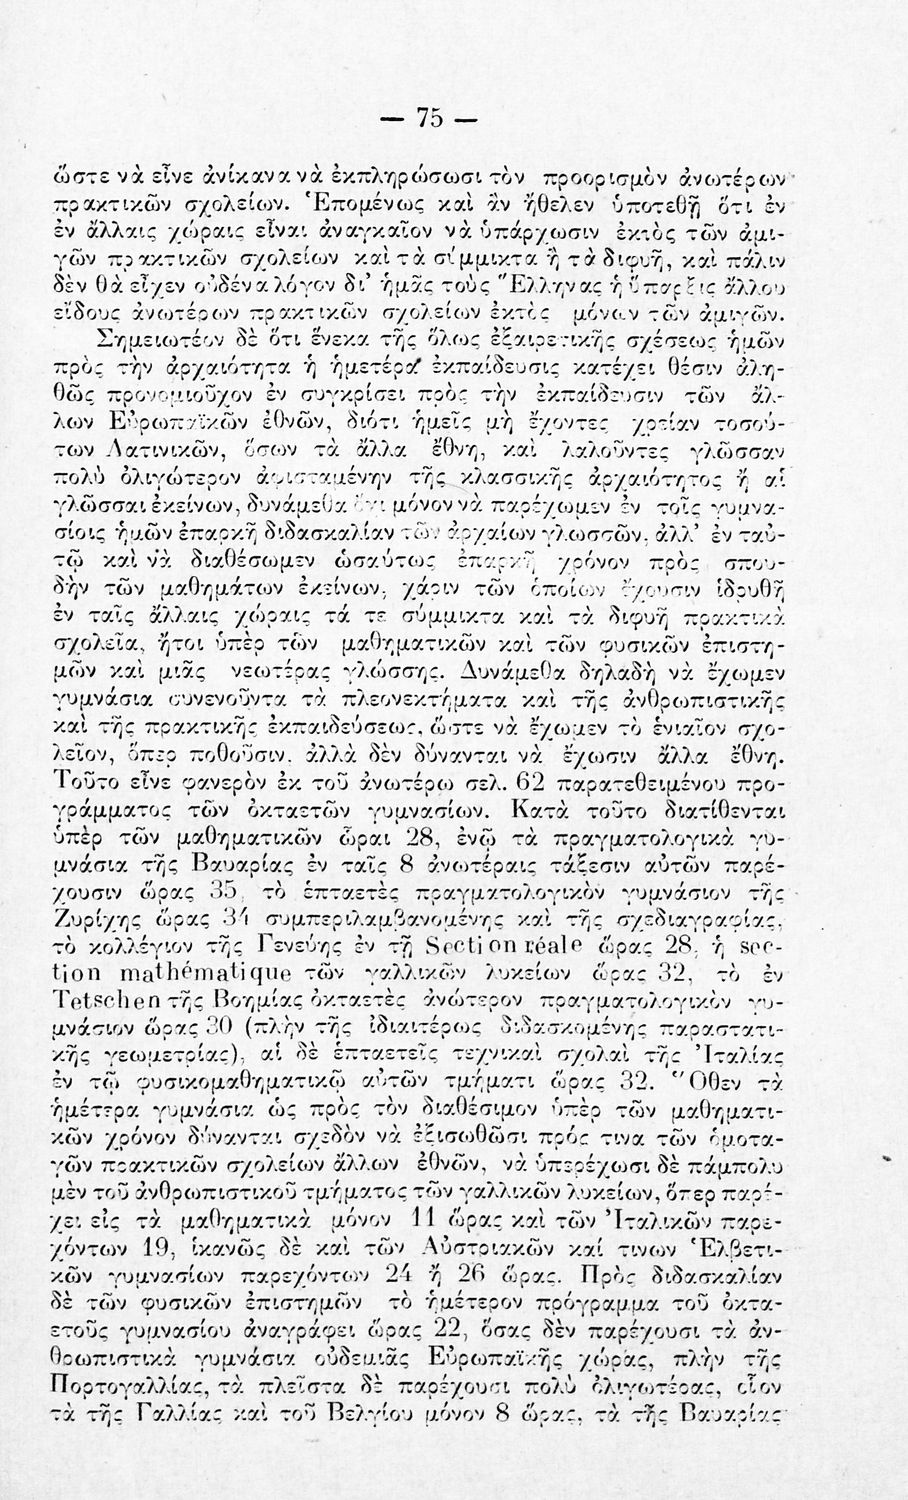 — 75 —
ὥστε νὰ εἶνε ἀνίκανα νὰ ἐκπληρώσωσι τὸν προορισμὸν ἀνωτέρων
πρακτικῶν σχολείων. Ἑπομένως καὶ ἂν ἤθελεν ὑποτεθῇ ὅτι ἐν
ἐν ἄλλαις χώραις εἶναι ἀναγκαῖον νὰ ὑπάρχωσιν ἐκτὸς τῶν ἀμι-
γῶν πρακτικῶν σχολείων καὶ τὰ σύμμικτα ἢ τὰ διφυῆ, καὶ πάλιν
δὲν θὰ εἶχεν οὐδένα λόγον δι' ἡμᾶς τοὺς Ἕλληνας ἡ ὕπαρξις ἄλλου
εἴδους ἀνωτέρων πρακτικῶν σχολείων ἐκτὸς μόνων τῶν ἀμιγῶν.
Σημειωτέον δὲ ὅτι ἕνεκα τῆς ὅλως ἐξαιρετικῆς σχέσεως ἡμῶν
πρὸς τὴν ἀρχαιότητα ἡ ἡμετέρα ἐκπαίδευσις κατέχει θέσιν ἀλη-
θῶς προνομιοῦχον ἐν συγκρίσει πρὸς τὴν ἐκπαίδευσιν τῶν ἄλ-
λων Εὐρωπαϊκῶν ἐθνῶν, διότι ἡμεῖς μὴ ἔχοντες χρείαν τοσού-
των Λατινικῶν, ὅσων τὰ ἄλλα ἔθνη, καὶ λαλοῦντες γλῶσσαν
πολὺ ὀλιγώτερον ἀφισταμένην τῆς κλασσικῆς ἀρχαιότητος ἢ αἱ
γλῶσσαι ἐκείνων, δυνάμεθα ὄχι μόνον νὰ παρέχωμεν ἐν τοῖς γυμνα-
σίοις ἡμῶν ἐπαρκῆ διδασκαλίαν τῶν ἀρχαίων γλωσσῶν, ἀλλ' ἐν ταὐ-
τῷ καὶ νὰ διαθέσωμεν ὡσαύτως ἐπαρκῆ χρόνον πρὸς σπου-
δὴν τῶν μαθημάτων ἐκείνων, χάριν τῶν ὁποίων ἔχουσιν ἱδρυθῆ
ἐν ταῖς ἄλλαις χώραις τά τε σύμμικτα καὶ τὰ διφυῆ πρακτικὰ
σχολεῖα, ἤτοι ὑπὲρ τῶν μαθηματικῶν καὶ τῶν φυσικῶν ἐπιστη-
μῶν καὶ μιᾶς νεωτέρας γλώσσης. Δυνάμεθα δηλαδὴ νὰ ἔχωμεν
γυμνάσια συνενοῦντα τὰ πλεονεκτήματα καὶ τῆς ἀνθρωπιστικῆς
καὶ τῆς πρακτικῆς ἐκπαιδεύσεως, ὥστε νὰ ἔχωμεν τὸ ἑνιαῖον σχο-
λεῖον, ὅπερ ποθοῦσιν, ἀλλὰ δὲν δύνανται νὰ ἔχωσιν ἄλλα ἔθνη.
Τοῦτο εἶνε φανερὸν ἐκ τοῦ ἀνωτέρω σελ. 62 παρατεθειμένου προ-
γράμματος τῶν ὀκταετῶν γυμνασίων. Κατὰ τοῦτο διατίθενται
ὑπὲρ τῶν μαθηματικῶν ὧραι 28, ἐνῷ τὰ πραγματολογικὰ γυ-
μνάσια τῆς Βαυαρίας ἐν ταῖς 8 ἀνωτέραις τάξεσιν αὐτῶν παρέ-
χουσιν ὥρας 35, τὸ ἑπταετὲς πραγματολογικὸν γυμνάσιον τῆς
Ζυρίχης ὥρας 34 συμπεριλαμβανομένης καὶ τῆς σχεδιαγραφίας,
τὸ κολλέγιον τῆς Γενεύης ἐν τῇ Section réale ὥρας 28, ἡ sec-
tion mathématique τῶν γαλλικῶν λυκείων ὥρας 32, τὸ ἐν
Tetschen τῆς Βοημίας ὀκταετὲς ἀνώτερον πραγματολογικὸν γυ-
μνάσιον ὥρας 30 (πλὴν τῆς ἰδιαιτέρως διδασκομένης παραστατι-
κῆς γεωμετρίας), αἱ δὲ ἑπταετεῖς τεχνικαὶ σχολαὶ τῆς Ἰταλίας
ἐν τῷ φυσικομαθηματικῷ αὐτῶν τμήματι ὥρας 32. Ὅθεν τὰ
ἡμέτερα γυμνάσια ὡς πρὸς τὸν διαθέσιμον ὑπὲρ τῶν μαθηματι-
κῶν χρόνον δύνανται σχεδὸν νὰ ἐξισωθῶσι πρός τινα τῶν ὁμοτα-
γῶν πρακτικῶν σχολείων ἄλλων ἐθνῶν, νὰ ὑπερέχωσι δὲ πάμπολυ
μὲν τοῦ ἀνθρωπιστικοῦ τμήματος τῶν γαλλικῶν λυκείων, ὅπερ παρέ-
χει εἰς τὰ μαθηματικὰ μόνον 11 ὥρας καὶ τῶν Ἰταλικῶν παρε-
χόντων 19, ἱκανῶς δὲ καὶ τῶν Αὐστριακῶν καί τινων Ἑλβετι-
κῶν γυμνασίων παρεχόντων 24 ἢ 26 ὥρας. Πρὸς διδασκαλίαν
δὲ τῶν φυσικῶν ἐπιστημῶν τὸ ἡμέτερον πρόγραμμα τοῦ ὀκτα-
ετοῦς γυμνασίου ἀναγράφει ὥρας 22, ὅσας δὲν παρέχουσι τὰ ἀν-
θρωπιστικὰ γυμνάσια οὐδεμιᾶς Εὐρωπαϊκῆς χώρας, πλὴν τῆς
Πορτογαλλίας, τὰ πλεῖστα δὲ παρέχουσι πολὺ ὀλιγωτέρας, οἷον
τὰ τῆς Γαλλίας καὶ τοῦ Βελγίου μόνον 8 ὥρας, τὰ τῆς Βαυαρίας